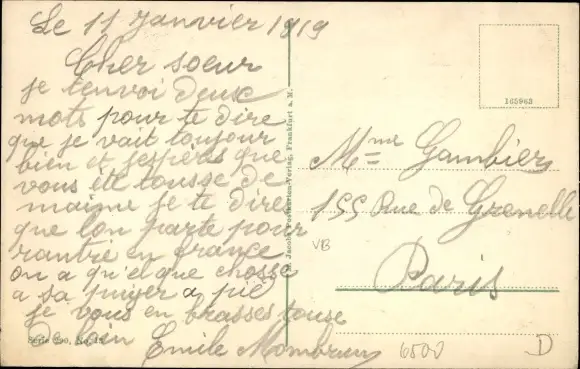 Le 11 Janvier 1919
Cher soeur
je tenvoi deux
mots pour te dire
que je vait toujour
bien et jespères que
vous ête tousse de
maime je te dire
que lon parte pour
rantré en france
on a qu'el que chosse
a sa puyer a pié
je vous en brasses touse
de bien Emile Mombrun
Mme Gambier
155 Rue de Grenelle
Paris
VB
6500
D
165962
Jacobs Postkarten-Verlag, Frankfurt a. M.
Serie 299, No.